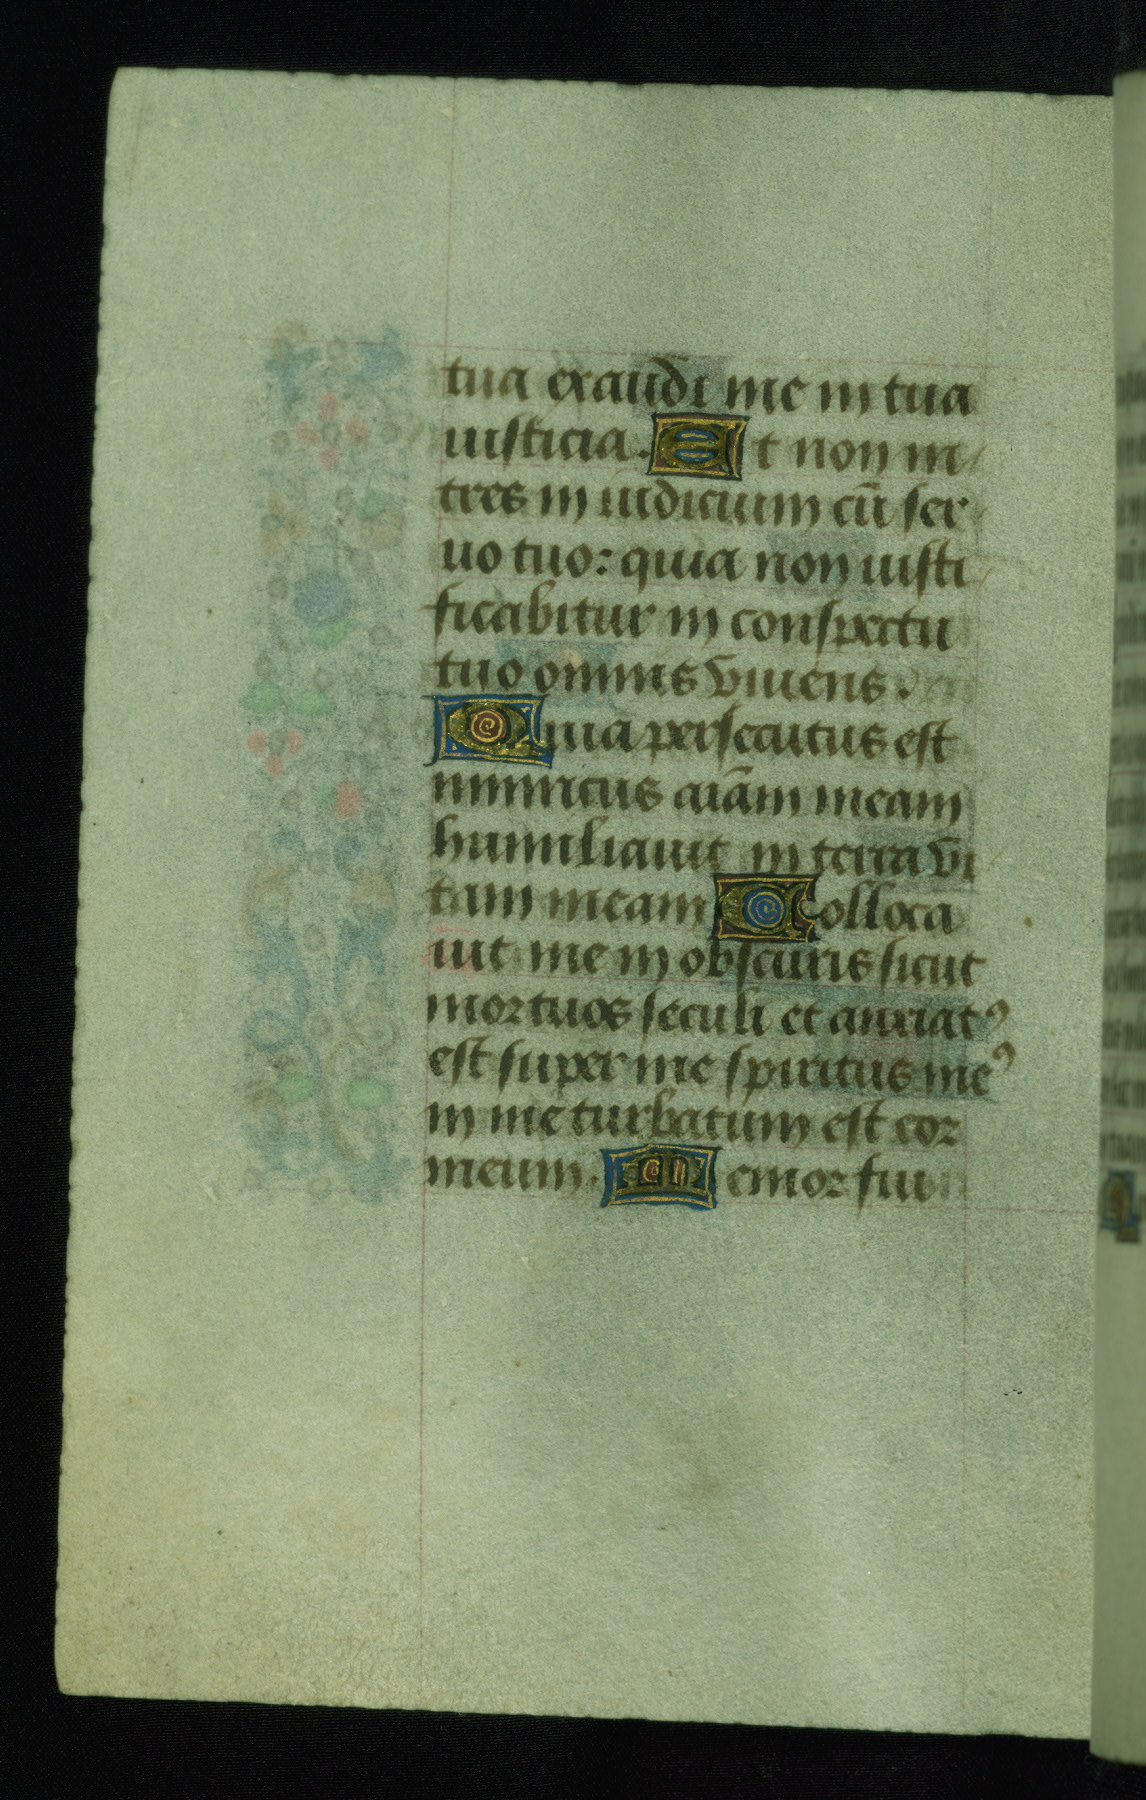 tua exaudi me in tua
iusticia. Et non in
tres in iudicium cū ser
uo tuo: quia non iusti
ficabitur in conspectu
tuo omnis viuens.
Quia persecutus est
inimicus aiām meam
humiliauit in terra vi
tam meam Colloca
uit me in obscuris sicut
mortuos seculi et anxiatꝰ
est super me spiritus meꝰ
in me turbatum est cor
meum. Memor fui